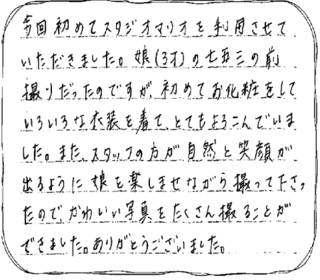 今回初めてスタジオマリオを利用させて
いただきました。娘(3才)の七五三の前
撮りだったのですが、初めてお化粧をして
いろいろな衣装を着て、とてもよろこんでいま
した。また、スタッフの方が自然と笑顔が
出るように娘を楽しませながら撮って下さっ
たので、かわいい写真をたくさん撮ることが
できました。ありがとうございました。